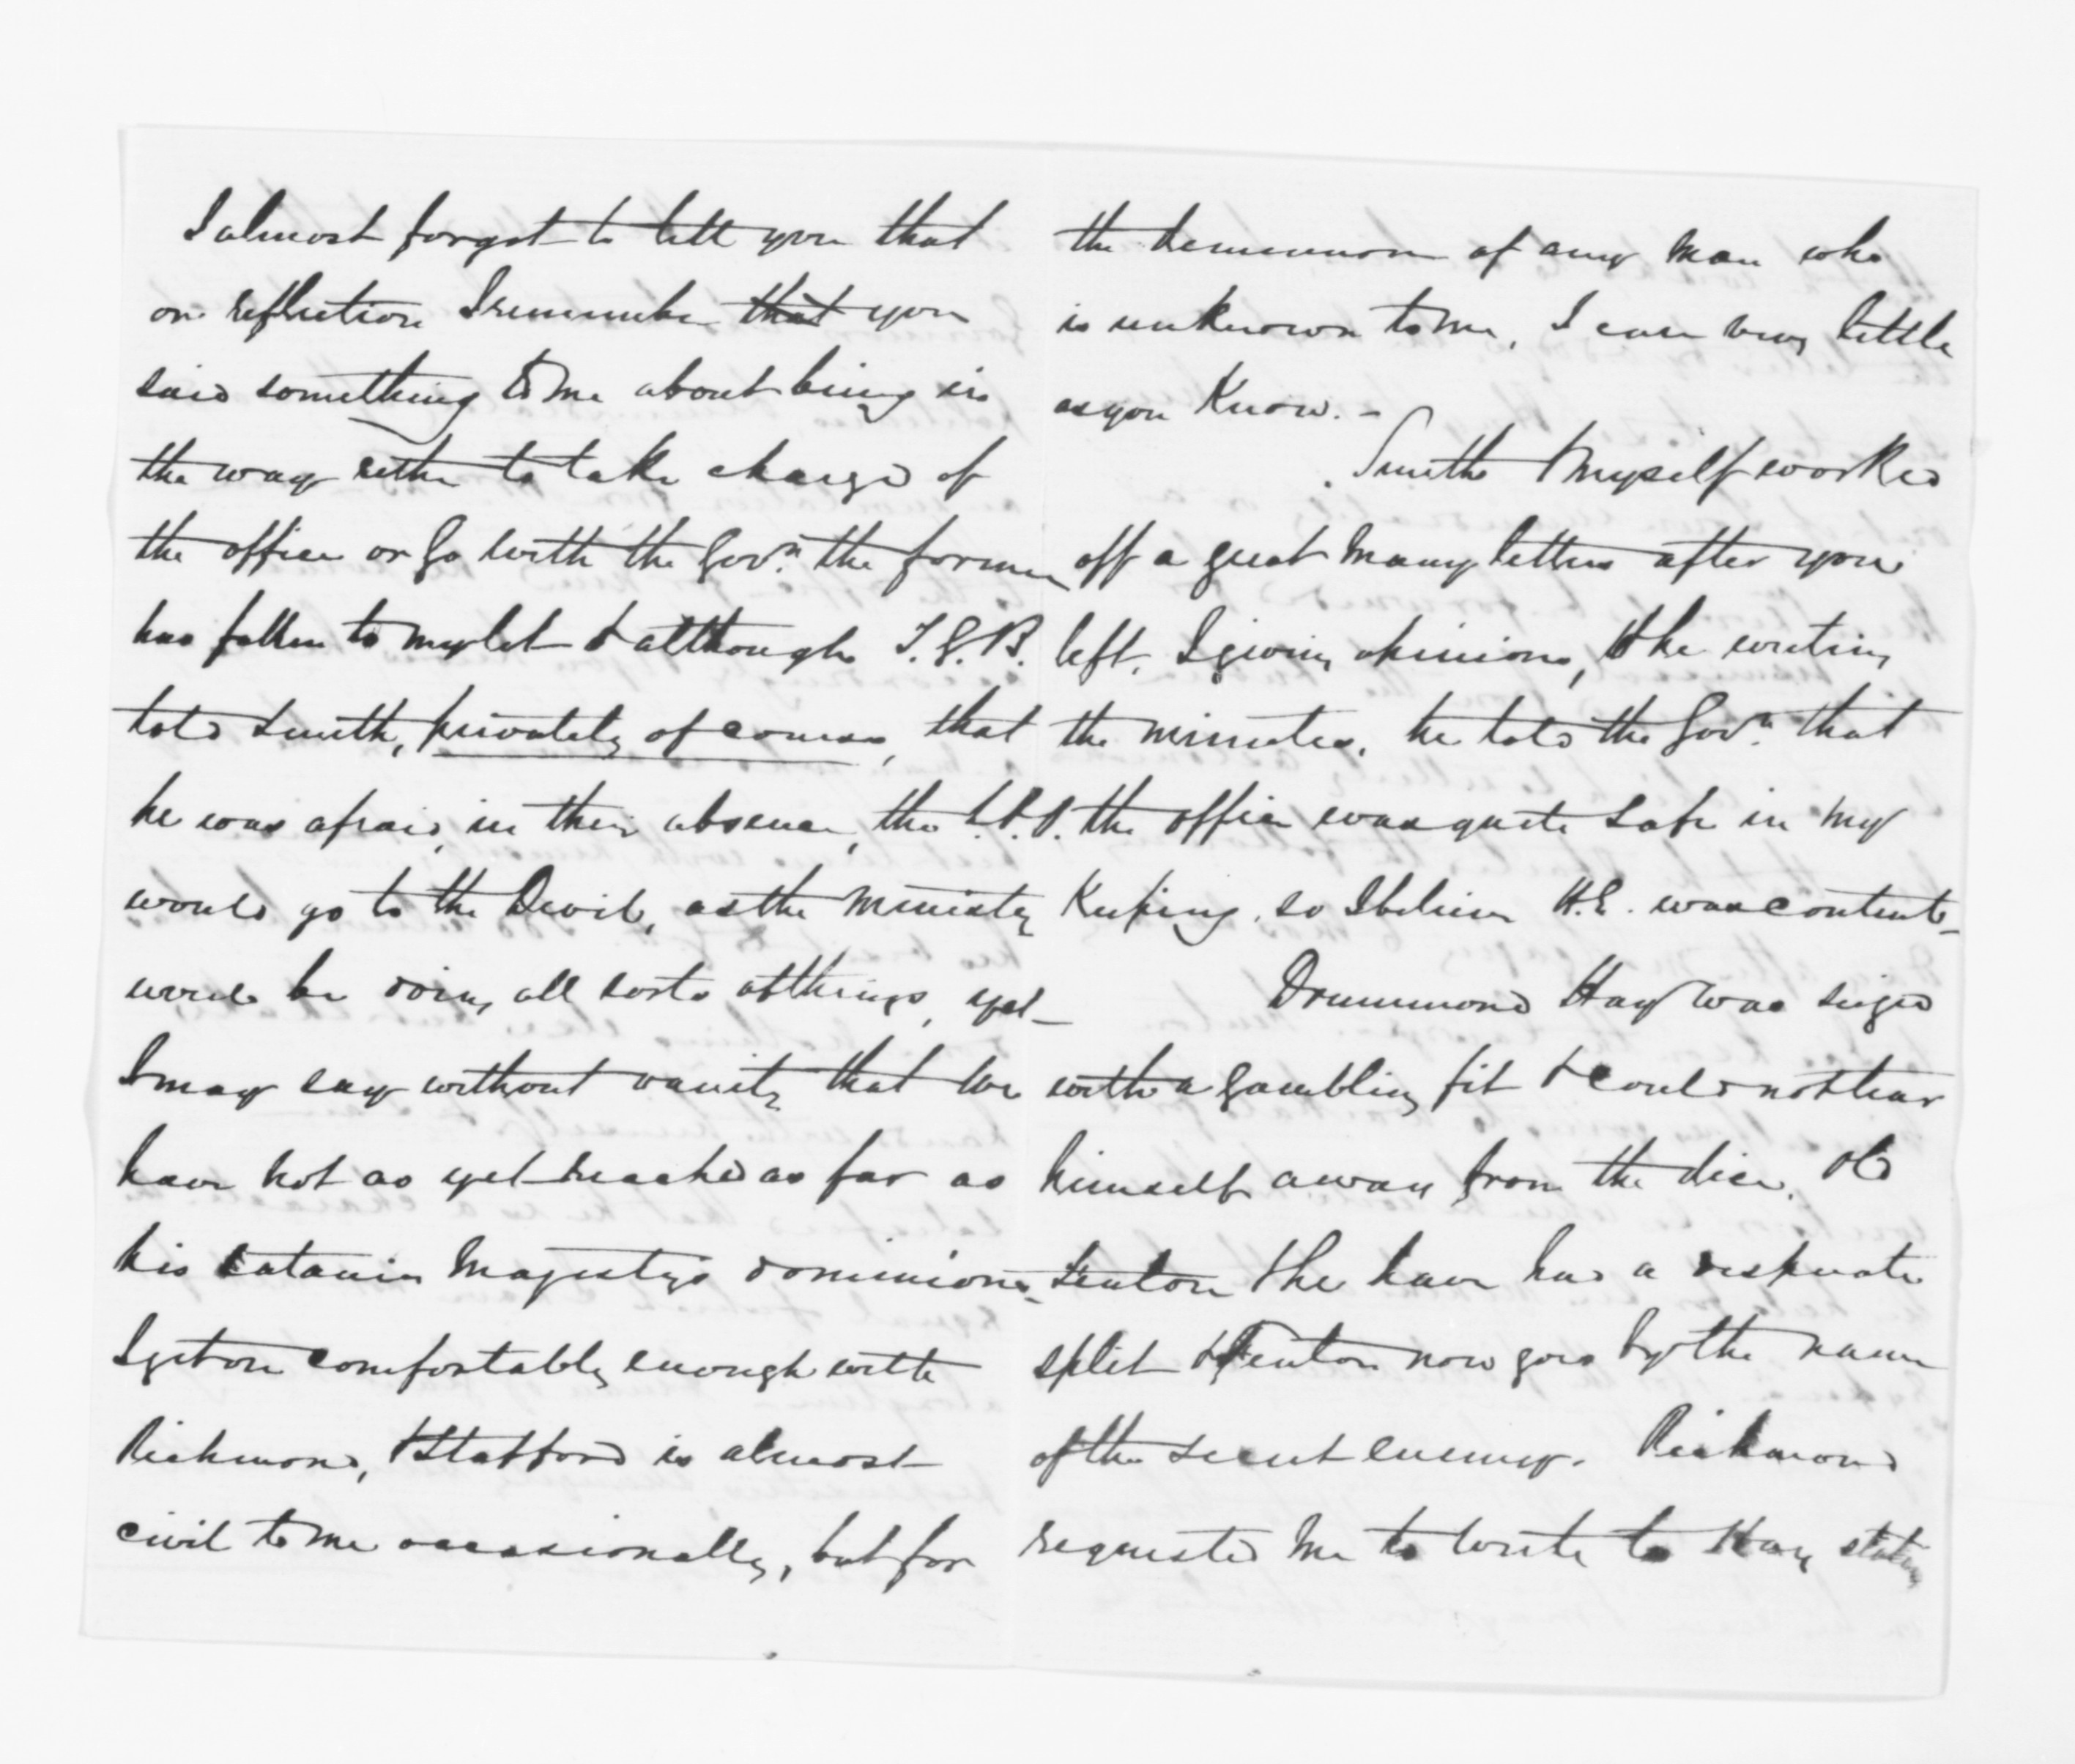 I almost forgot to tell you that
on reflection I remember that you
said something to me about being in
the way either to take charge of
the office or go with the Govr. the former
has fallen to my lot & although T.G.B.
told Smith, privately of course, that
he was afraid, in their absence, the
would go to the Devil, as the Ministry
would be doing all sorts of things, yet
I may say without vanity that we
have not as yet reached as far as
his satanic Majesty's dominions.
I get on comfortably enough with
Richmond, & Stafford is almost
civil to me occasionally, but for
the demeanor of any man who
is unknown to me, I care very little
as you know. -
Smith & myself worked
off a great many letters after you
left, I giving opinions, & he writing
the minutes, he told the Govr. that
the office was quite safe in my
Keeping, so I believe H.E. was content.
Drummond Hay was seized
with a gambling fit & could not tear
himself away from the dice. Old
Fenton & he have had a desperate
split & Fenton now goes by the name
of the secret enemy. Richmond
requested me to write to Hay stating